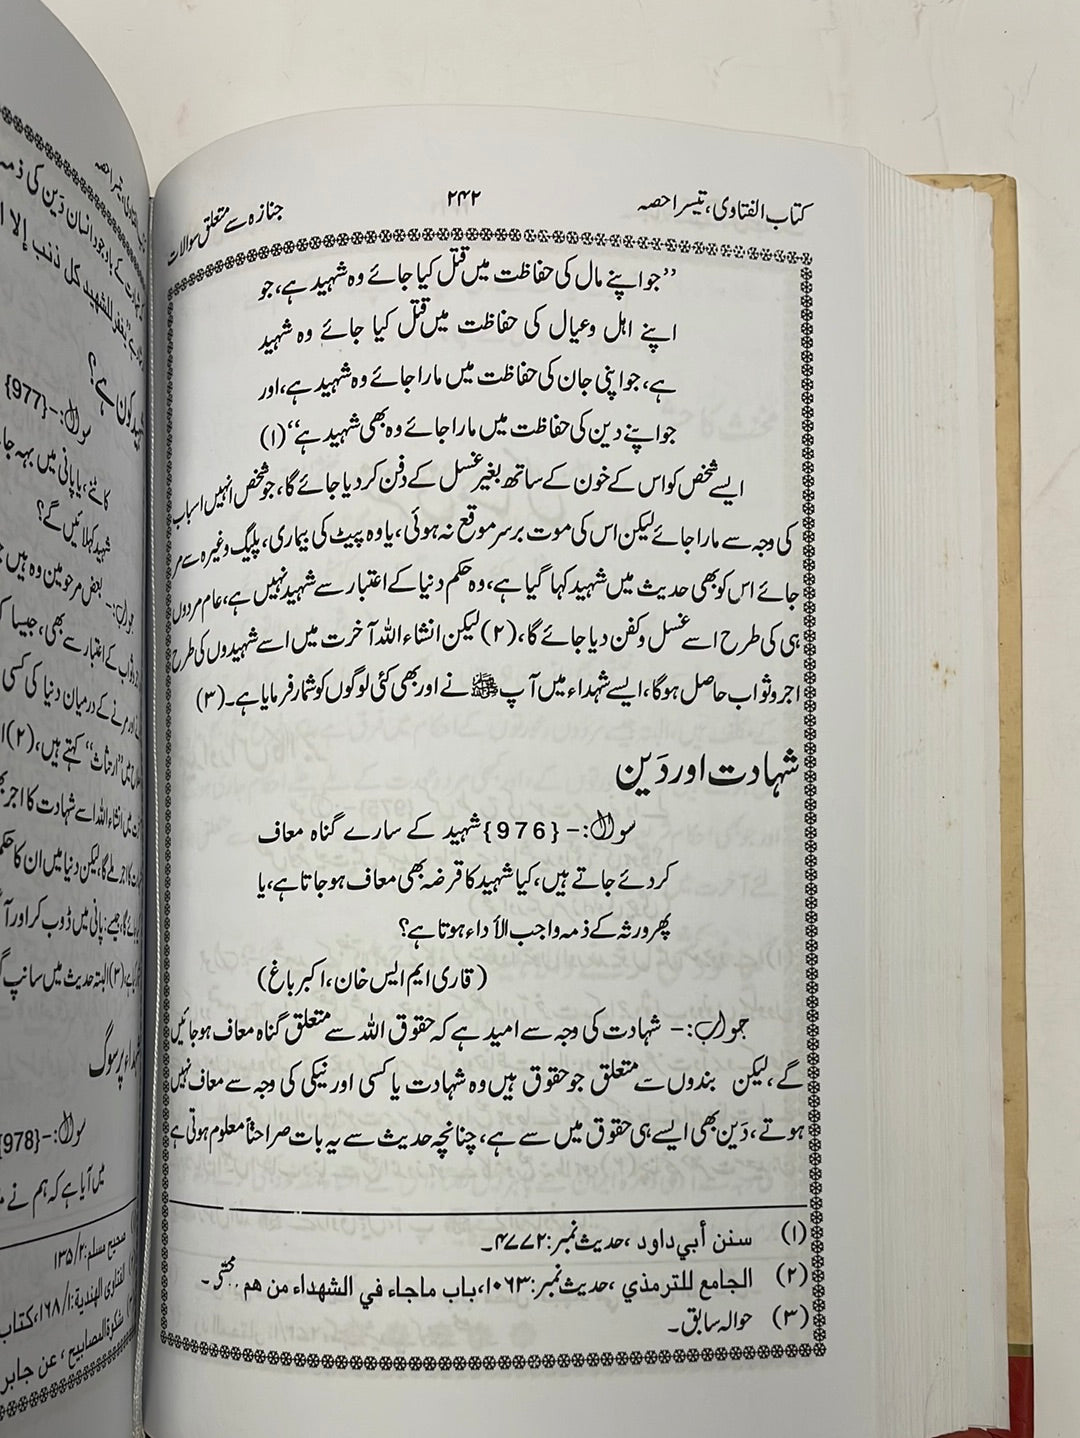 کتاب الفتاوی، تیسرا حصہ ۲۴۲ جنازہ سے متعلق سوالات
’’جو اپنے مال کی حفاظت میں قتل کیا جائے وہ شہید ہے، جو
اپنے اہل وعیال کی حفاظت میں قتل کیا جائے وہ شہید
ہے، جو اپنی جان کی حفاظت میں مارا جائے وہ شہید ہے، اور
جو اپنے دین کی حفاظت میں مارا جائے وہ بھی شہید ہے‘‘(۱)
ایسے شخص کو اس کے خون کے ساتھ بغیر غسل کے دفن کر دیا جائے گا، جو شخص انہیں اسباب
کی وجہ سے مارا جائے لیکن اس کی موت برسر موقع نہ ہوئی، یا وہ پیٹ کی بیماری، پلیگ وغیرہ سے مر
جائے اس کو بھی حدیث میں شہید کہا گیا ہے، وہ حکم دنیا کے اعتبار سے شہید نہیں ہے، عام مردوں
ہی کی طرح اسے غسل وکفن دیا جائے گا، (۲) لیکن انشاء اللہ آخرت میں اسے شہیدوں کی طرح
اجر وثواب حاصل ہوگا، ایسے شہداء میں آپ ﷺ نے اور بھی کئی لوگوں کو شمار فرمایا ہے۔ (۳)
شہادت اور دَین
سوال:- {976} شہید کے سارے گناہ معاف
کر دئے جاتے ہیں، کیا شہید کا قرضہ بھی معاف ہو جاتا ہے، یا
پھر ورثہ کے ذمہ واجب الأداء ہوتا ہے؟
(قاری ایم ایس خان، اکبر باغ)
جواب:- شہادت کی وجہ سے امید ہے کہ حقوق اللہ سے متعلق گناہ معاف ہو جائیں
گے، لیکن بندوں سے متعلق جو حقوق ہیں وہ شہادت یا کسی اور نیکی کی وجہ سے معاف نہیں
ہوتے، دَین بھی ایسے ہی حقوق میں سے ہے، چنانچہ حدیث سے یہ بات صراحتاً معلوم ہوتی ہے
(۱) سنن أبي داود، حدیث نمبر: ۴۷۷۲۔
(۲) الجامع للترمذي، حدیث نمبر: ۱۰۶۳، باب ماجاء في الشهداء من هم، محشی۔
(۳) حوالہ سابق۔
کے باوجود انسان دَین کی ذمہ
للشهید کل ذنب إلا ا
شہید کون ہے؟
سوال:- {977}
کاٹنے، یا پانی میں بہہ جا
شہید کہلائیں گے؟
جواب:- بعض مرحومین وہ ہیں
کے اعتبار سے بھی، جیسا
مرنے کے درمیان دنیا کی کسی
میں ’’ارتثاث‘‘ کہتے ہیں، (۲)
میں انشاء اللہ اسے شہادت کا اجر
ملے گا، لیکن دنیا میں ان کا حکم
جیسے: پانی میں ڈوب کر اور آ
(۳) البتہ حدیث میں سانپ
شہداء پر سوگ
سوال:- {978}
میں آیا ہے کہ ہم نے
صحیح مسلم: ۲/۱۳۵
الفتاوی الهندية: ۱/۱۶۸، کتاب
مشکوة المصابیح، عن جابر